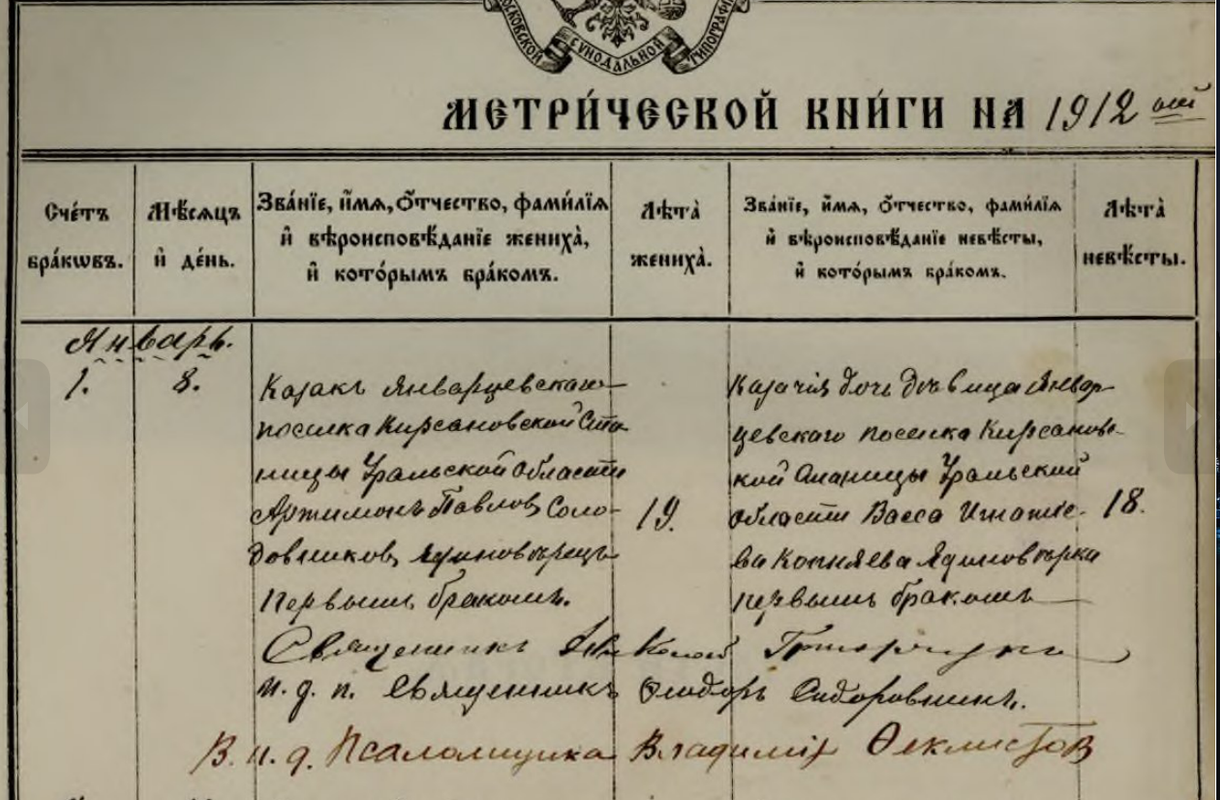 МОСКОВСКОЙ СУНОДАЛЬНОЙ ТИПОГРАФ
МЕТРИ́ЧЕСКОЙ КНИ́ГИ НА 1912 ый
Сче́тъ бра́кѡвъ.
Мѣ́сѧцъ и҆ де́нь.
Зва́нїе, и҆́мѧ, ѻ҆́тчество, фами́лїѧ и҆ вѣроисповѣ́данїе жениха̀, и҆ кото́рымъ бра́комъ.
Лѣ́та̀ жениха̀.
Зва́нїе, и҆́мѧ, ѻ҆́тчество, фами́лїѧ и҆ вѣроисповѣ́данїе невѣ́сты, и҆ кото́рымъ бра́комъ.
Лѣ́та̀ невѣ́сты.
Январь.
1.
8.
Казакъ Январцевскаго
поселка Кирсановской Ста-
ницы Уральской области
Артимонъ Павловъ Соло-
довниковъ, единовѣрецъ
Первымъ бракомъ.
19.
Казачья дочь дѣвица Январ-
цевскаго поселка Кирсановс-
кой Станицы Уральской
области Васса Игнатье-
ва Копняева Единовѣрка
первымъ бракомъ
18.
Священникъ Николай
и. д. п. Священникъ Ѳеодоръ Сидоровнинъ.
В. и. д. Псаломщика Владимiръ Ѳеклистовъ